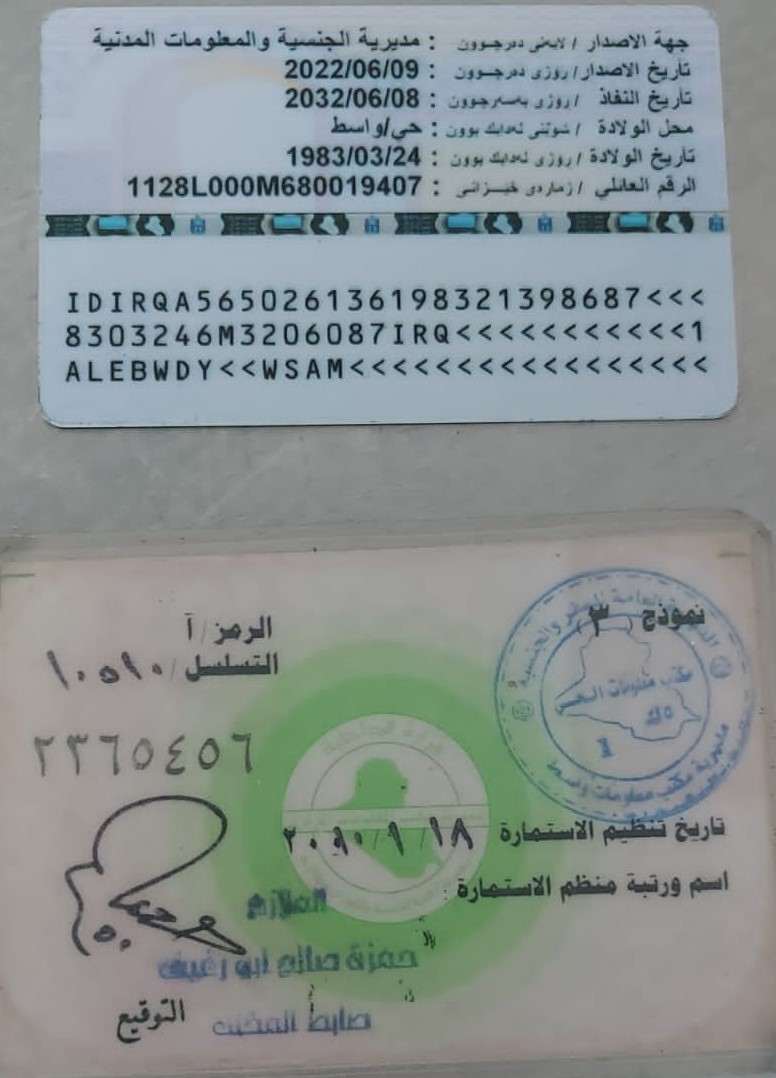 جهة الاصدار / لايەنى دەرچوون : مديرية الجنسية والمعلومات المدنية
تاريخ الاصدار / رۆژى دەرچوون : 2022/06/09
تاريخ النفاذ / رۆژى بەسەرچوون : 2032/06/08
محل الولادة / شوێنى لەدايك بوون : حي/واسط
تاريخ الولادة / رۆژى لەدايك بوون : 1983/03/24
الرقم العائلي / ژمارەى خێزانى : 1128L000M680019407
IDIRQA565026136198321398687<<<
8303246M3206087IRQ<<<<<<<<<<<1
ALEBWDY<<WSAM<<<<<<<<<<<<<<<<<
نموذج (٣)
الرمز / آ
التسلسل / ١٠٥١٠
مكتب معلومات
مديرية مكتب معلومات واسط
٢٣٦٥٤٥٦
تاريخ تنظيم الاستمارة
اسم ورتبة منظم الاستمارة :
الملازم
حمزة صالح ابو رغيف
ضابط المكتب
التوقيع